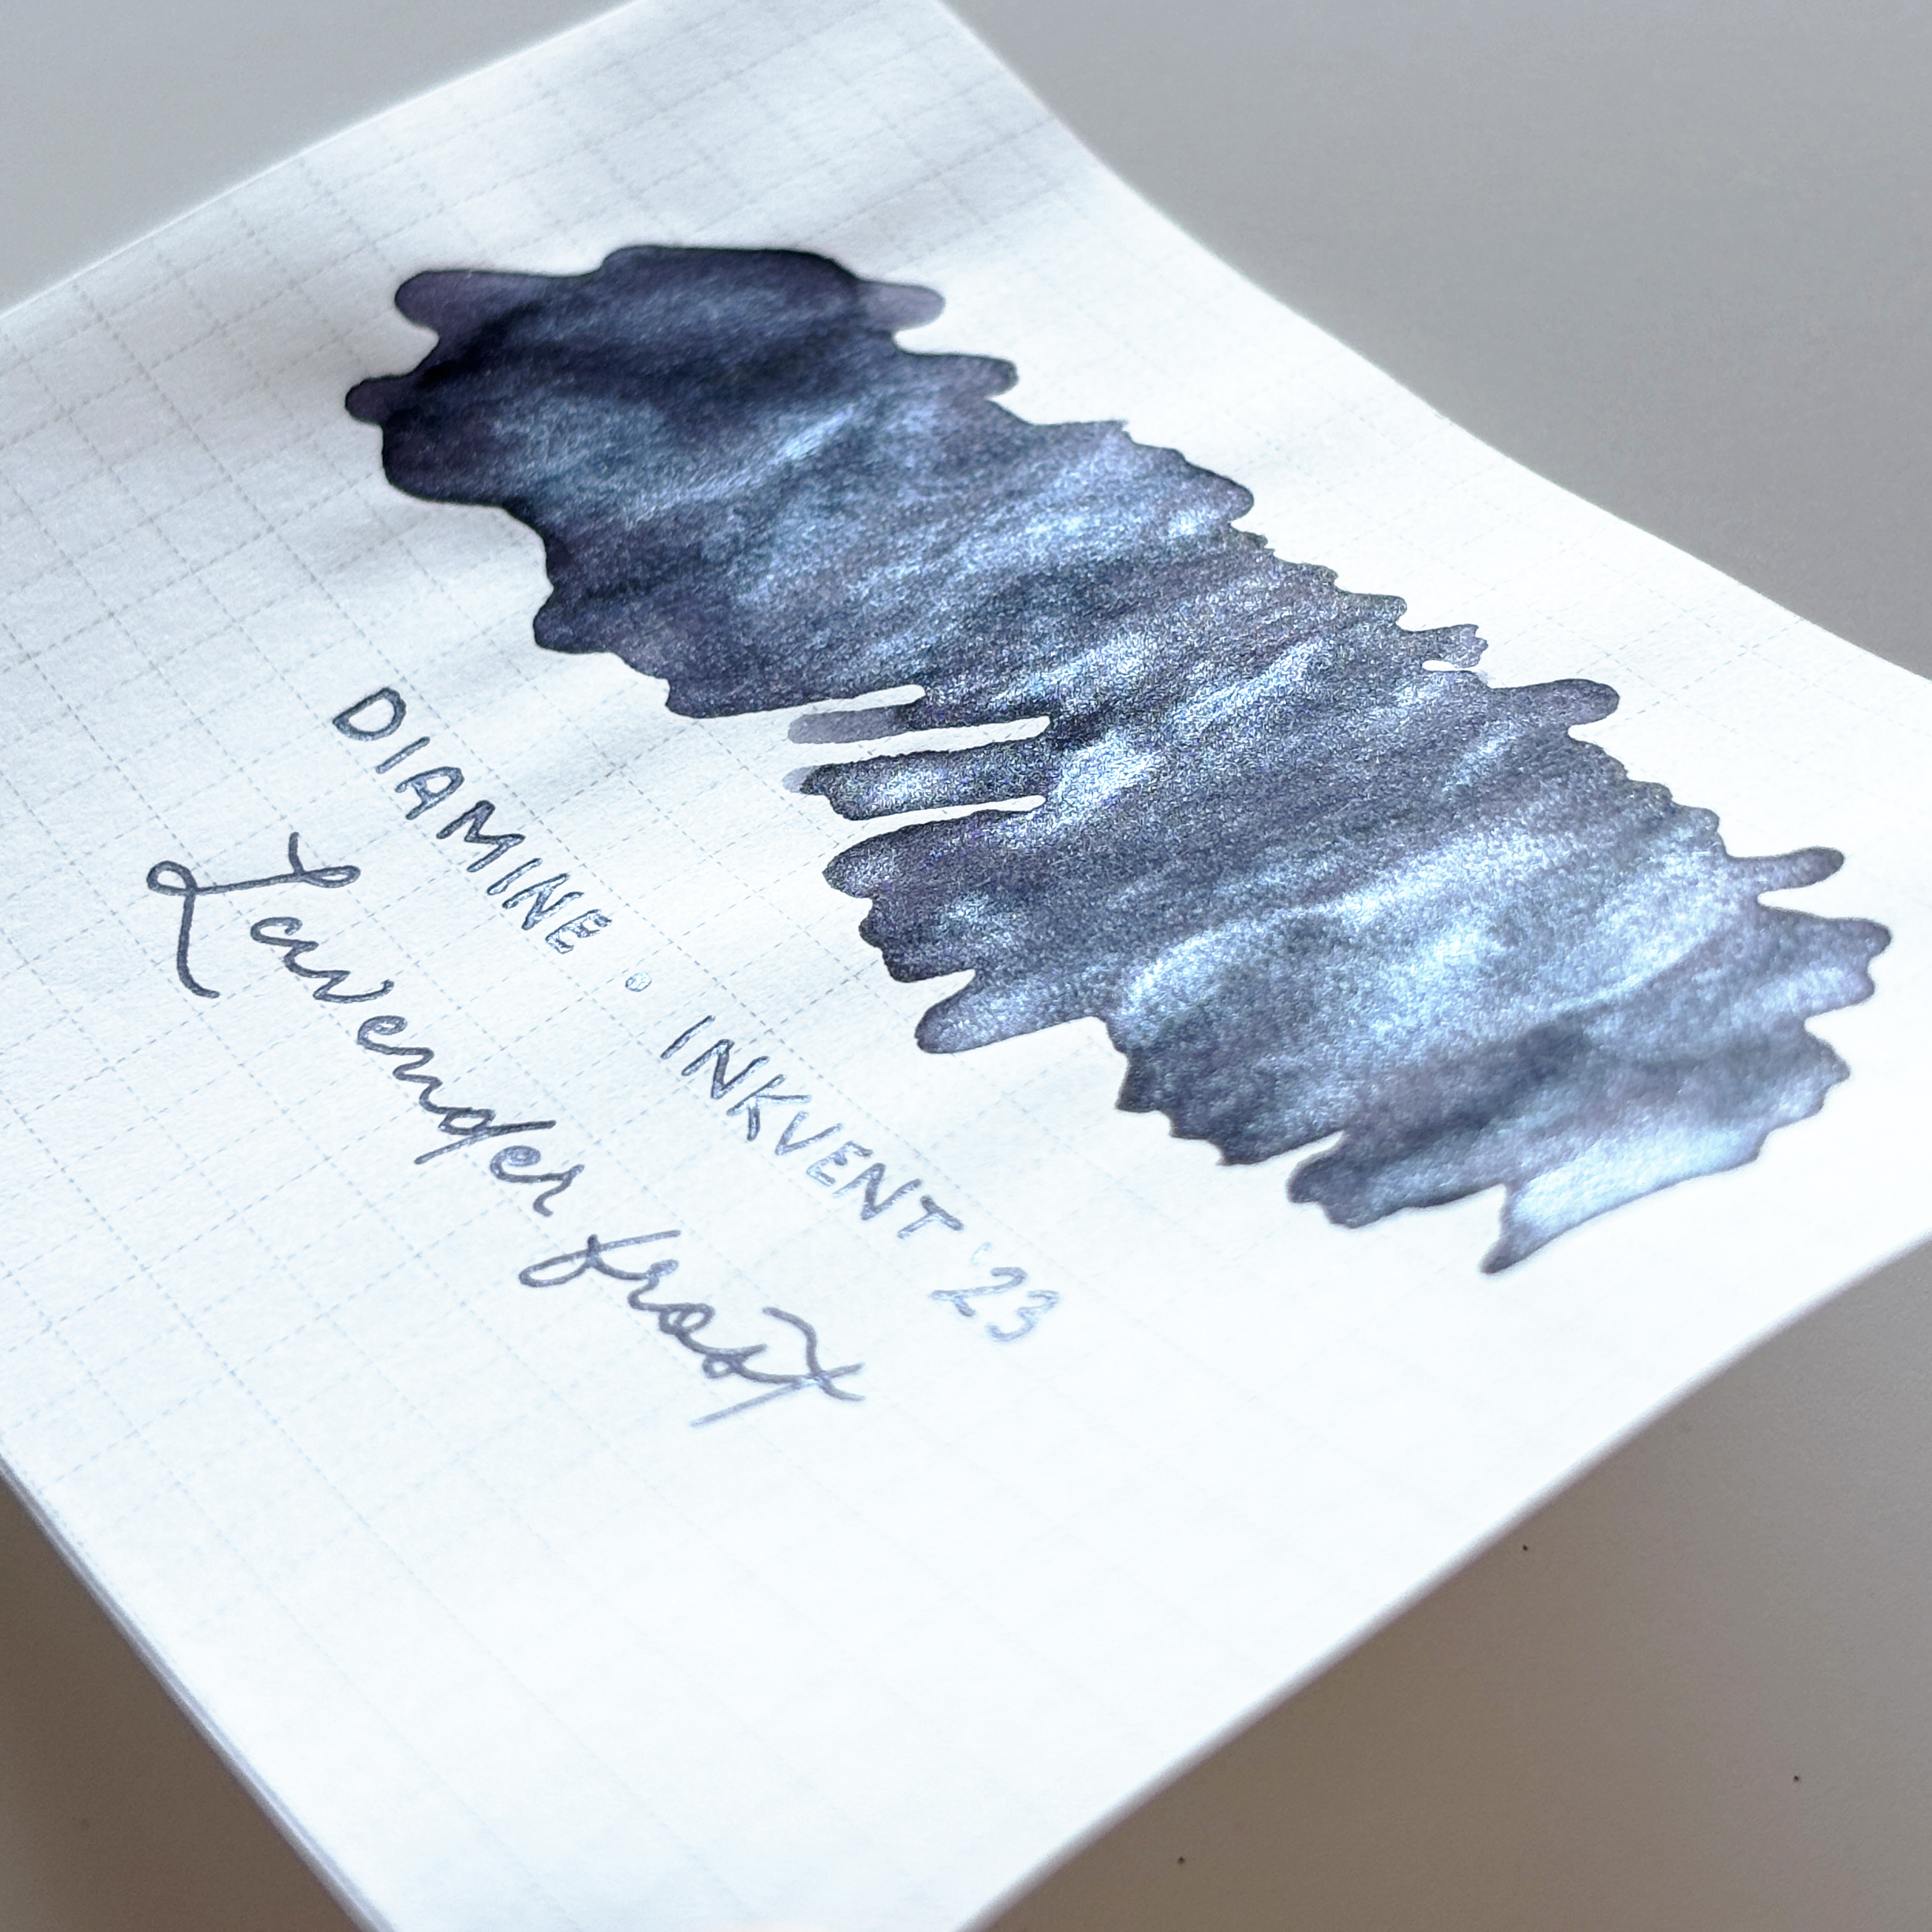 DIAMINE • INKVENT '23
Lavender frost